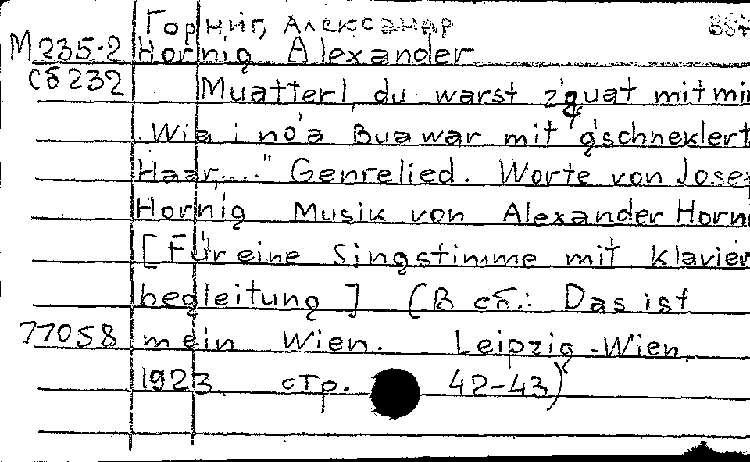 Горниг, Александр
М 235-2 Hornig Alexander
сб 232 Muatterl, du warst z'guat mit mir
Wia i no'a Bua war mit g'schneklert
Haar,...." Genrelied. Worte von Josef
Hornig Musik von Alexander Horn
[Für eine Singstimme mit Klavier
begleitung] (В сб.: Das ist
77058 mein Wien. Leipzig-Wien,
1923 стр. 42-43)